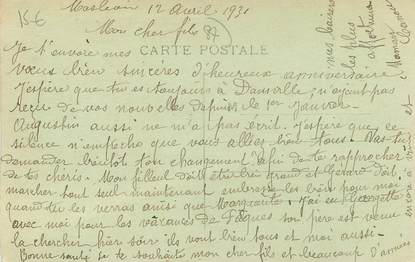 12 Avril 1931
Mon cher fils
CARTE POSTALE
Je t'envoie mes
vœux bien sincères d'heureux anniversaire
J'espère que tu es toujours à n'ayant pas
reçu de vos nouvelles depuis le 1er Janvier
Augustin aussi ne m'a pas écrit. J'espère que ce
silence n'empêche que vous allez bien tous. Vas-tu
demander bientôt ton changement afin de te rapprocher
de tes chéris. Mon filleul doit être bien grand et doit
marcher tout seul maintenant embrasse les bien pour moi
quand tu les verras ainsi que Marguerite. J'ai eu Georgette
avec moi pour les vacances de Pâques son père est venu
la chercher hier soir ils vont bien tous et moi aussi.
Bonne santé je te souhaite mon cher fils et beaucoup d'années
encore
mes baisers
les plus
affectueux
Maman